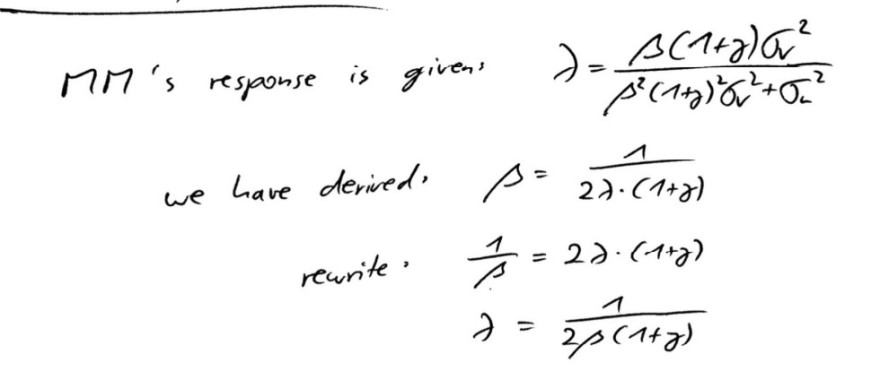 MM's response is given: λ = β(1+γ)σᵥ² / β²(1+γ)²σᵥ²+σᵤ²
we have derived: β = 1 / 2λ·(1+γ)
rewrite: 1/β = 2λ·(1+γ)
λ = 1 / 2β(1+γ)